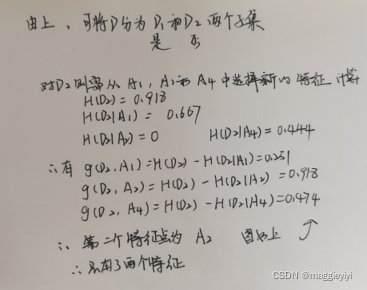 由上，可将D分为D₁和D₂两个子集
是 否
对D₂则需从A₁，A₂和A4中选择新的特征 计算
H(D₂) = 0.918
H(D₂|A₁) = 0.667
H(D₂|A₂) = 0 H(D₂|A4) = 0.444
∴有 g(D₂,A₁)=H(D₂)-H(D₂|A₁)=0.251
g(D₂,A₂)=H(D₂)-H(D₂|A₂)=0.918
g(D₂,A4)=H(D₂)-H(D₂|A4)=0.474
∴ 第二个特征点为 A₂ 图如上
∴只有了两个特征
CSDN @maggieyiyi